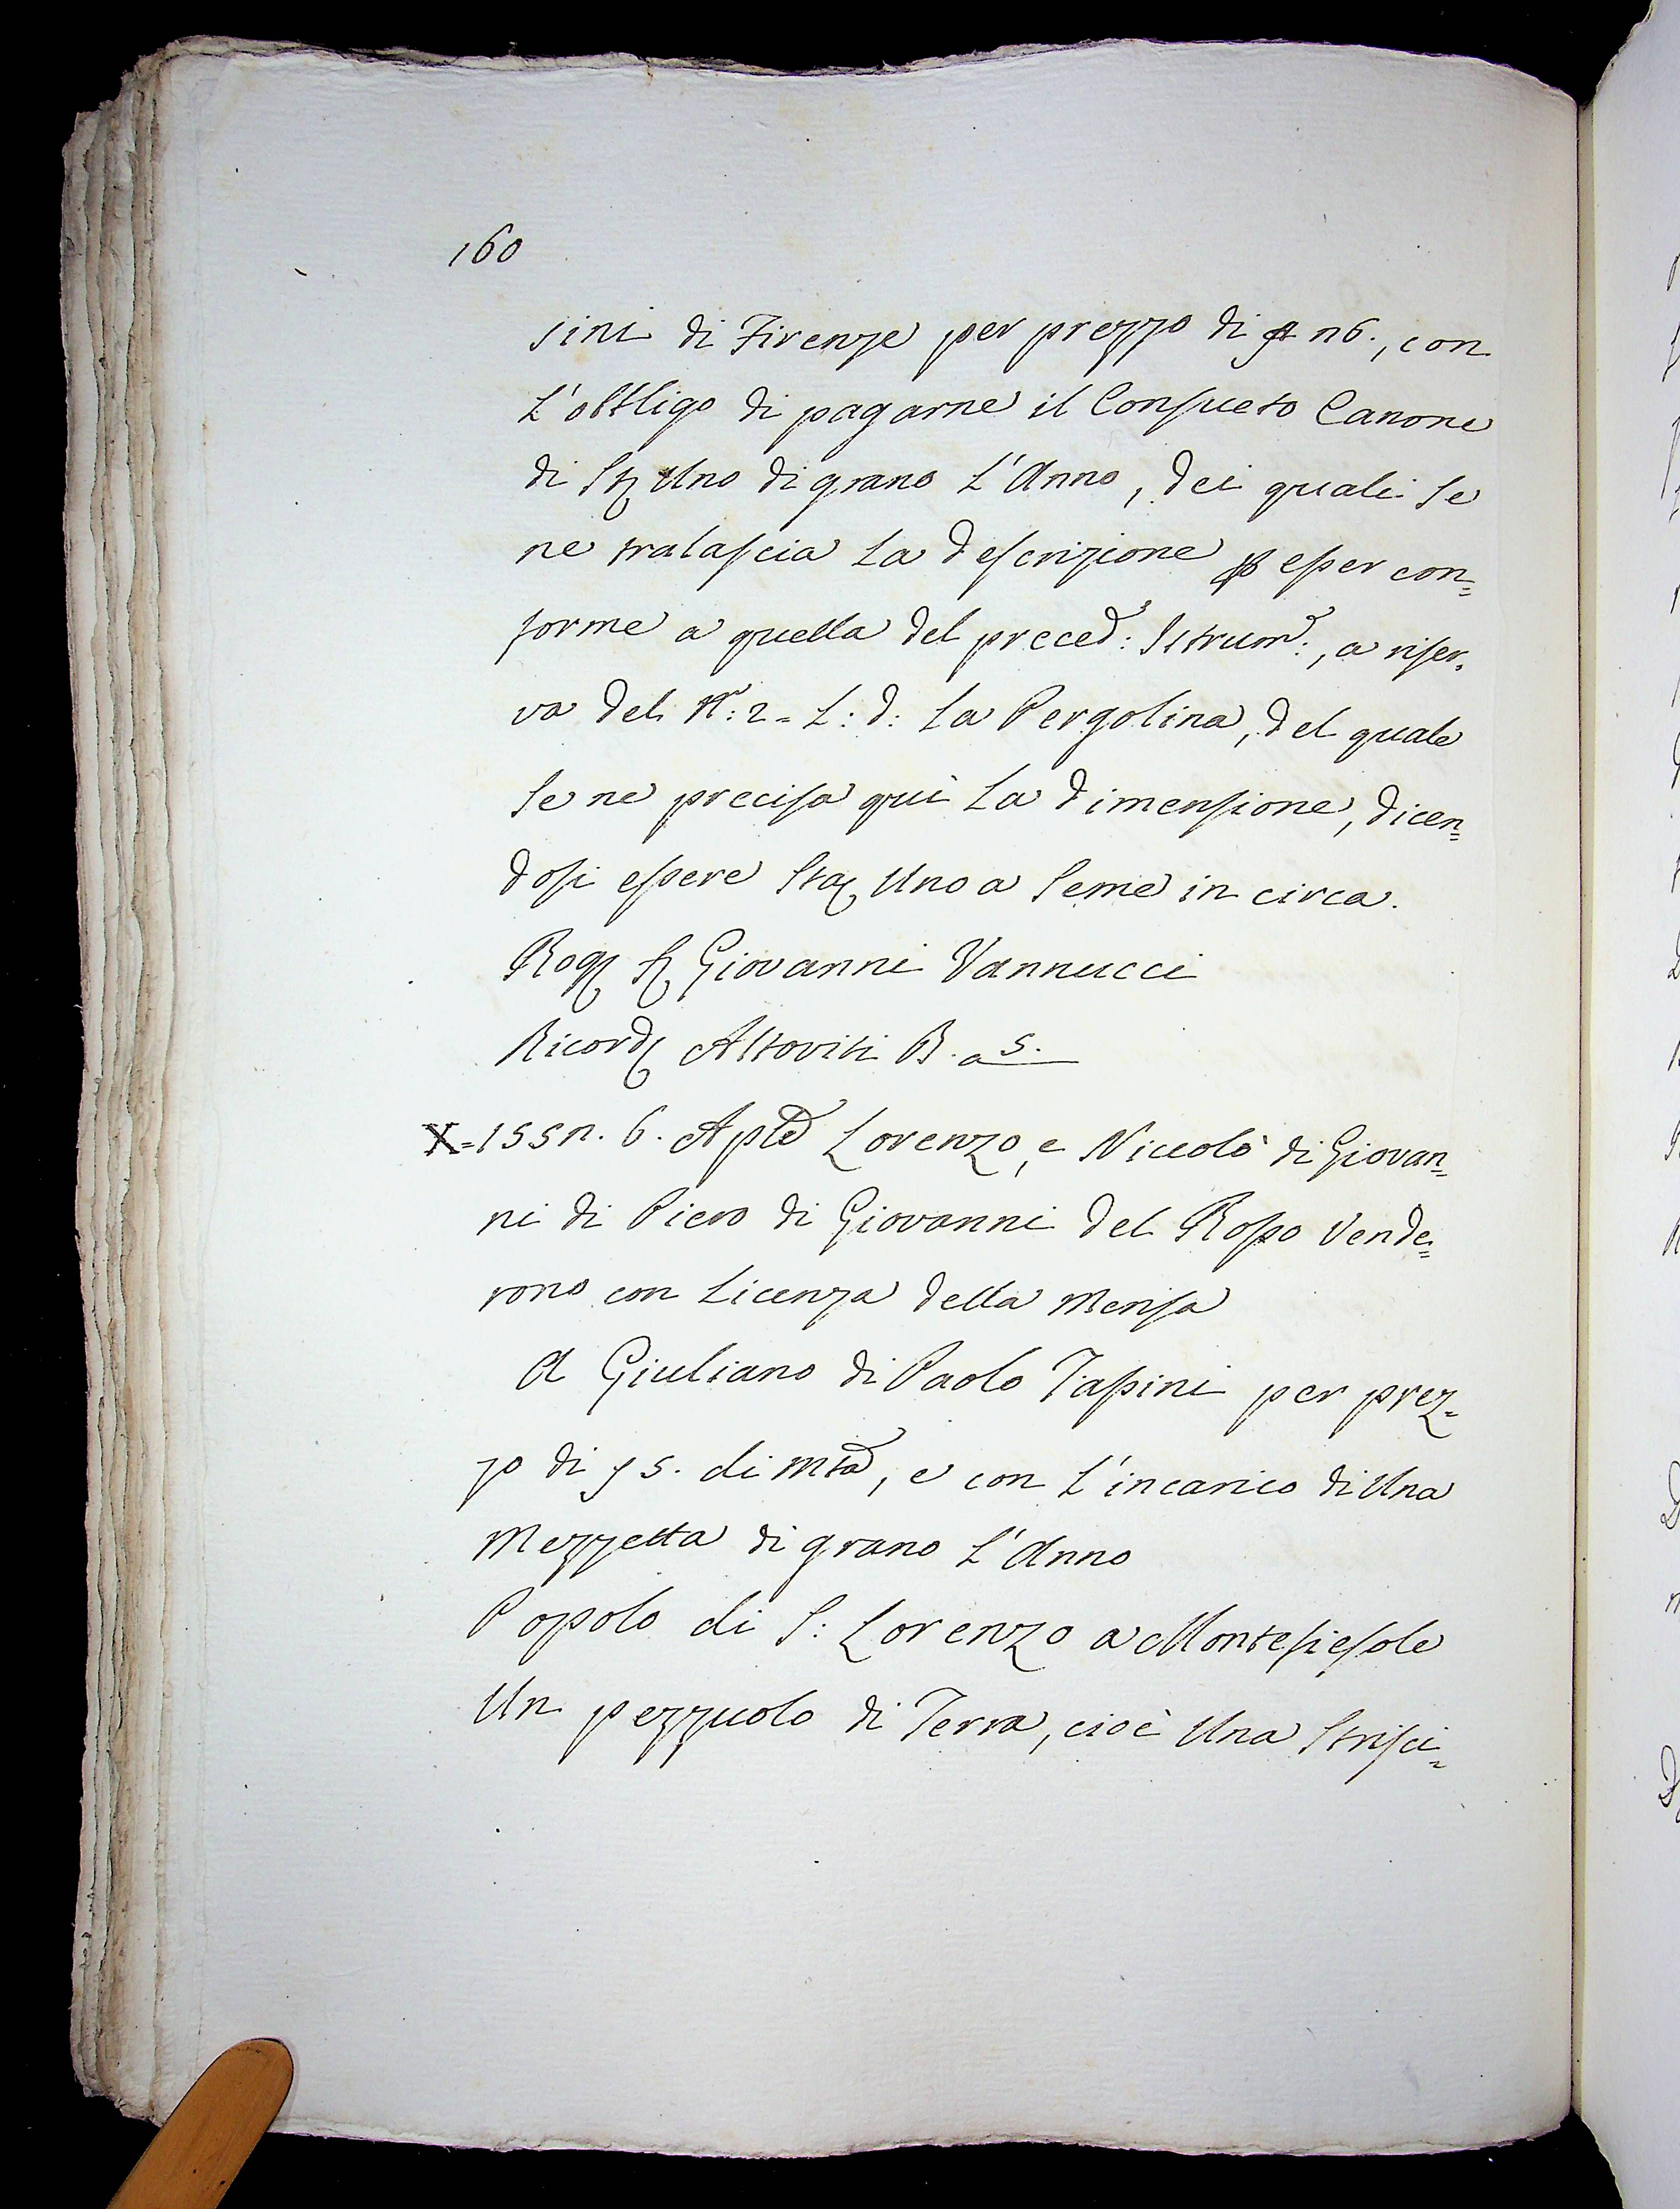 160
sini di Firenze per prezzo di 26., con
L'obbligo di pagarne il Consueto Canone
di Sta Uno di grano L'Anno, dei quali Se
ne tralascia La descrizione p esser con=
forme a quella del preced:e Istrum:o, a riser=
va del N:o 2= L: d: La Pergolina, del quale
Se ne precisa quì La dimensione, dicen=
dosi essere Sta Uno a Seme in circa.
Rog Sr Giovanni Vannucci
Ricord Altoviti B. a 5.
X=1552. 6. Aple Lorenzo, e Niccolò di Giovan=
ni di Piero di Giovanni del Rosso Vende=
rono con Licenza della Mensa
A Giuliano di Paolo Tassini per prez=
zo di 5. di Mta, e con L'incarico di Una
Mezzetta di grano L'Anno
Popolo di S: Lorenzo a Montefiesole
Un pezzuolo di Terra, cioè Una Strisci=